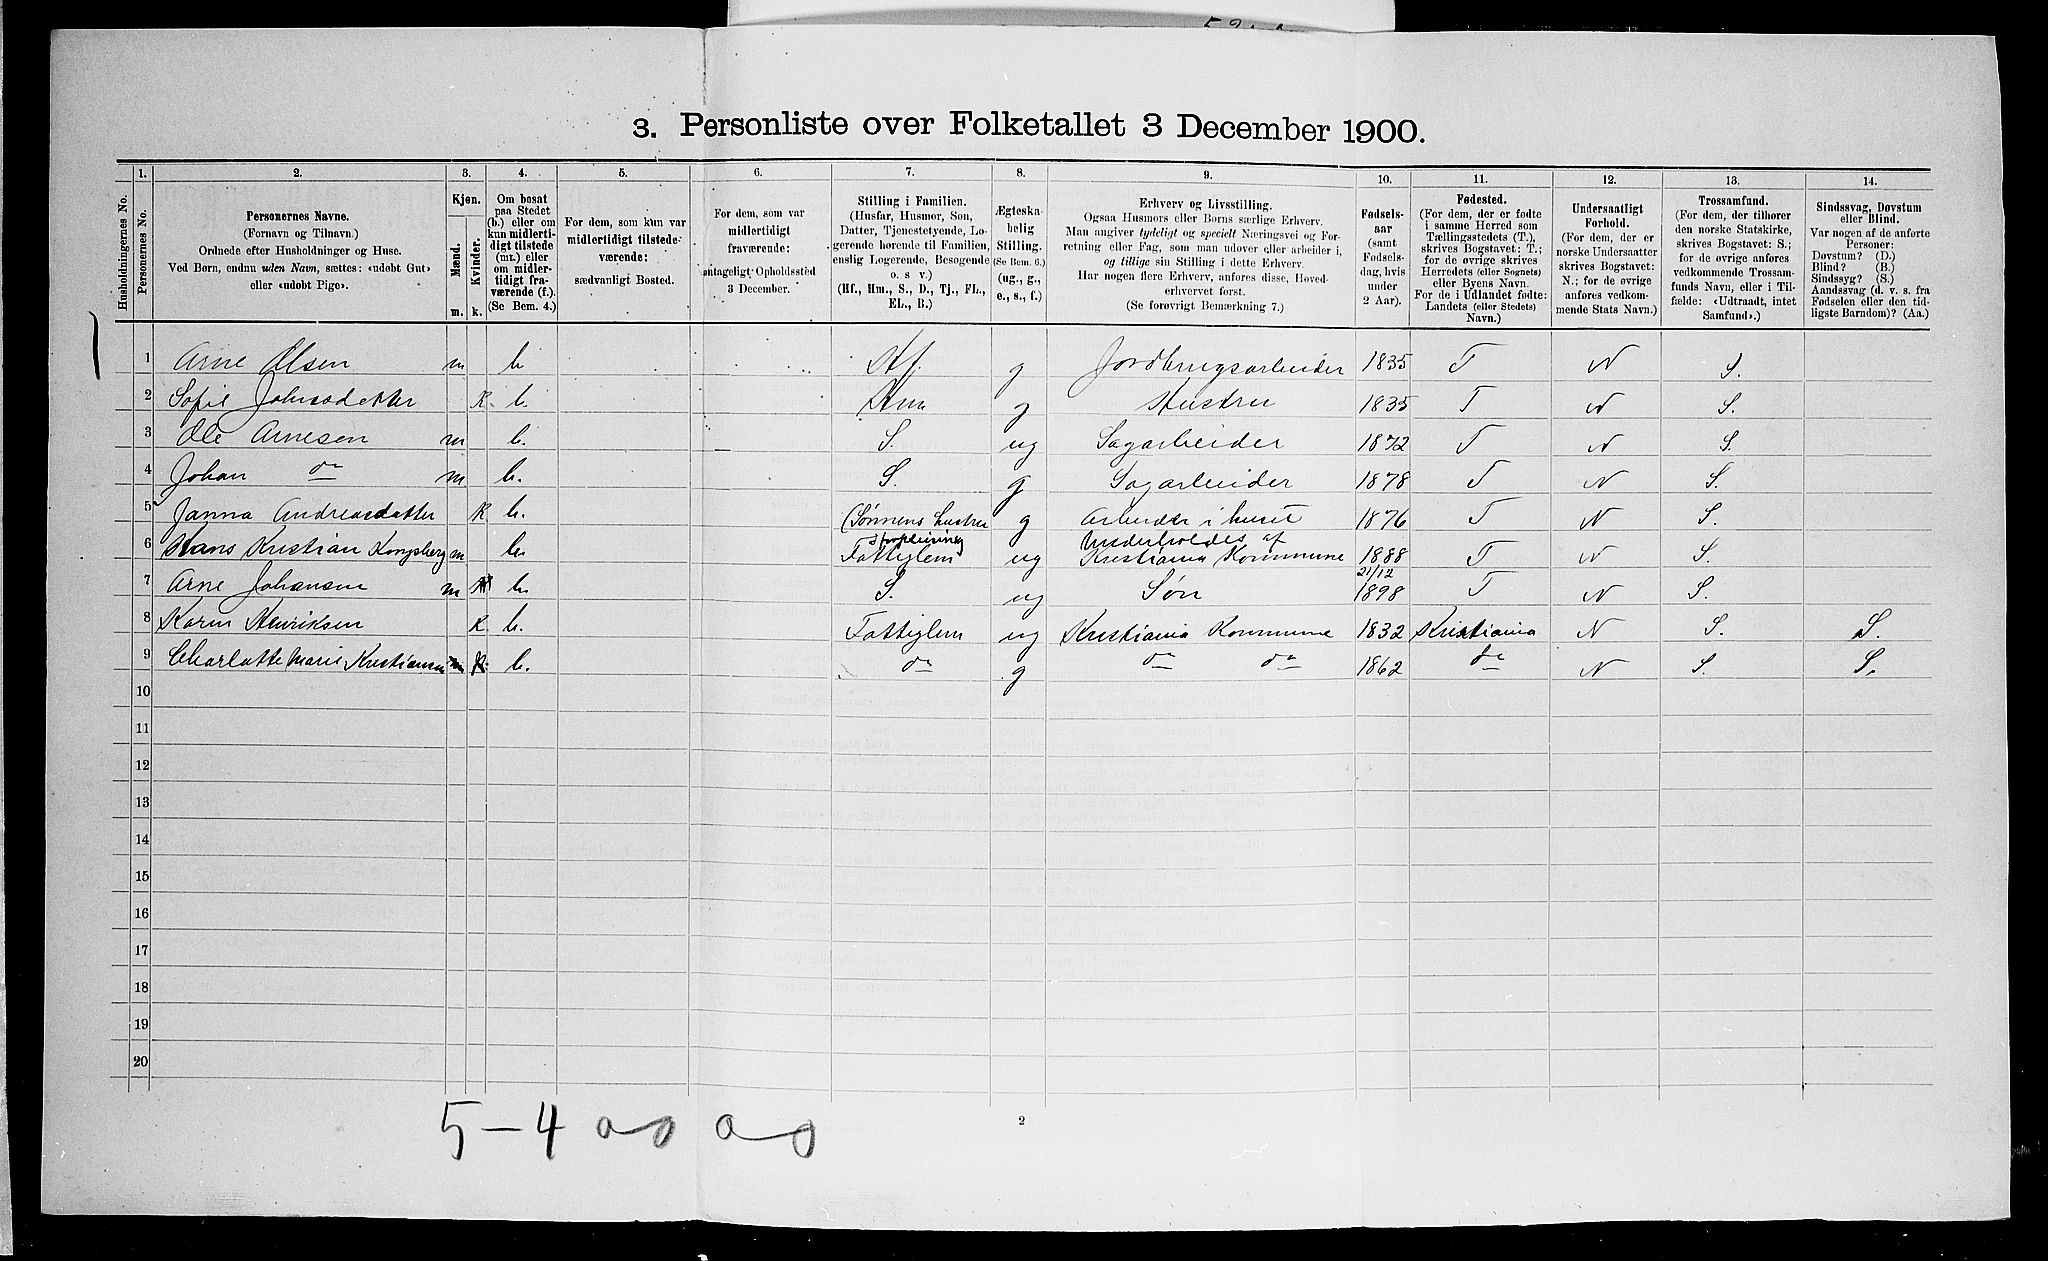 3. Personliste over Folketallet 3 December 1900.
Husholdningernes No.
1.
Personernes No.
2.
Personernes Navne.
(Fornavn og Tilnavn.)
Ordnede efter Husholdninger og Huse.
Ved Børn, endnu uden Navn, sættes: «udøbt Gut»
eller «udøbt Pige».
3.
Kjøn.
Mænd.
Kvinder.
m.
k.
4.
Om bosat
paa Stedet
(b.) eller om
kun midlerti-
digt tilstede
(mt.) eller
om midler-
tidigt fra-
værende (f.).
(Se Bem. 4.)
5.
For dem, som kun var
midlertidigt tilstede-
værende:
sædvanligt Bosted.
6.
For dem, som var
midlertidigt
fraværende:
antageligt Opholdssted
3 December.
7.
Stilling i Familien.
(Husfar, Husmor, Søn,
Datter, Tjenestetyende, Lo-
gerende hørende til Familien,
enslig Logerende, Besøgende
o. s v.)
(Hf., Hm., S., D., Tj., FL.,
EL., B.)
8.
Ægteska-
belig
Stilling.
(Se Bem. 6.)
(ug., g.,
e., s., f.)
9.
Erhverv og Livsstilling.
Ogsaa Husmors eller Børns særlige Erhverv.
Man angiver tydeligt og specielt Næringsvei og For-
retning eller Fag, som man udøver eller arbeider i,
og tillige sin Stilling i dette Erhverv.
Har nogen flere Erhverv, anføres disse, Hoved-
erhvervet først.
(Se forøvrigt Bemærkning 7.)
10.
Fødsels-
aar
(samt
Fødsels-
dag, hvis
under
2 Aar).
11.
Fødested.
(For dem, der er fødte
i samme Herred som
Tællingsstedets (T.),
skrives Bogstavet: T.;
for de øvrige skrives
Herredets (eller Sognets)
eller Byens Navn.
For de i Udlandet fødte:
Landets (eller Stedets)
Navn.)
12.
Undersaatligt
Forhold.
(For dem, der er
norske Undersaatter
skrives Bogstavet:
N.; for de øvrige
anføres vedkom-
mende Stats Navn.)
13.
Trossamfund.
(For dem, der tilhører
den norske Statskirke,
skrives Bogstavet: S.;
for de øvrige anføres
vedkommende Trossam-
funds Navn, eller i Til-
fælde: «Udtraadt, intet
Samfund».)
14.
Sindssvag, Døvstum
eller Blind.
Var nogen af de anførte
Personer:
Døvstum? (D.)
Blind? (B.)
Sindssyg? (S.)
Aandssvag (d. v. s. fra
Fødselen eller den tid-
ligste Barndom)? (Aa.)
1 Arne Olsen m b Hf. g Jordbrugsarbeider 1835 T N S.
2 Sofie Johnsdatter K. b. Hm g Hustru 1835 T N S.
3 Ole Arnesen m b. S. ug Sagarbeider 1872 T N S.
4 Johan do m b. S. g Sagarbeider 1878 T N S.
5 Janna Andreasdatter K b. (Sønnens hustru g Arbeider i huset 1876 T N S.
6 Hans Kristian Kongsberg m b. Fattiglem ug Underholdes af
Kristiania Kommune 1888 T N S.
7 Arne Johansen m b. S. ug Søn 21/12
1898 T N S.
8 Karen Henriksen K. b. Fattiglem ug Kristiania Kommune 1832 Kristiania N S. S.
9 Charlotte Marie Kristiansen K. b. do g do do 1862 do N S. S.
10
11
12
13
14
15
16
17
18
19
20
5-4 0-0 0-0
2